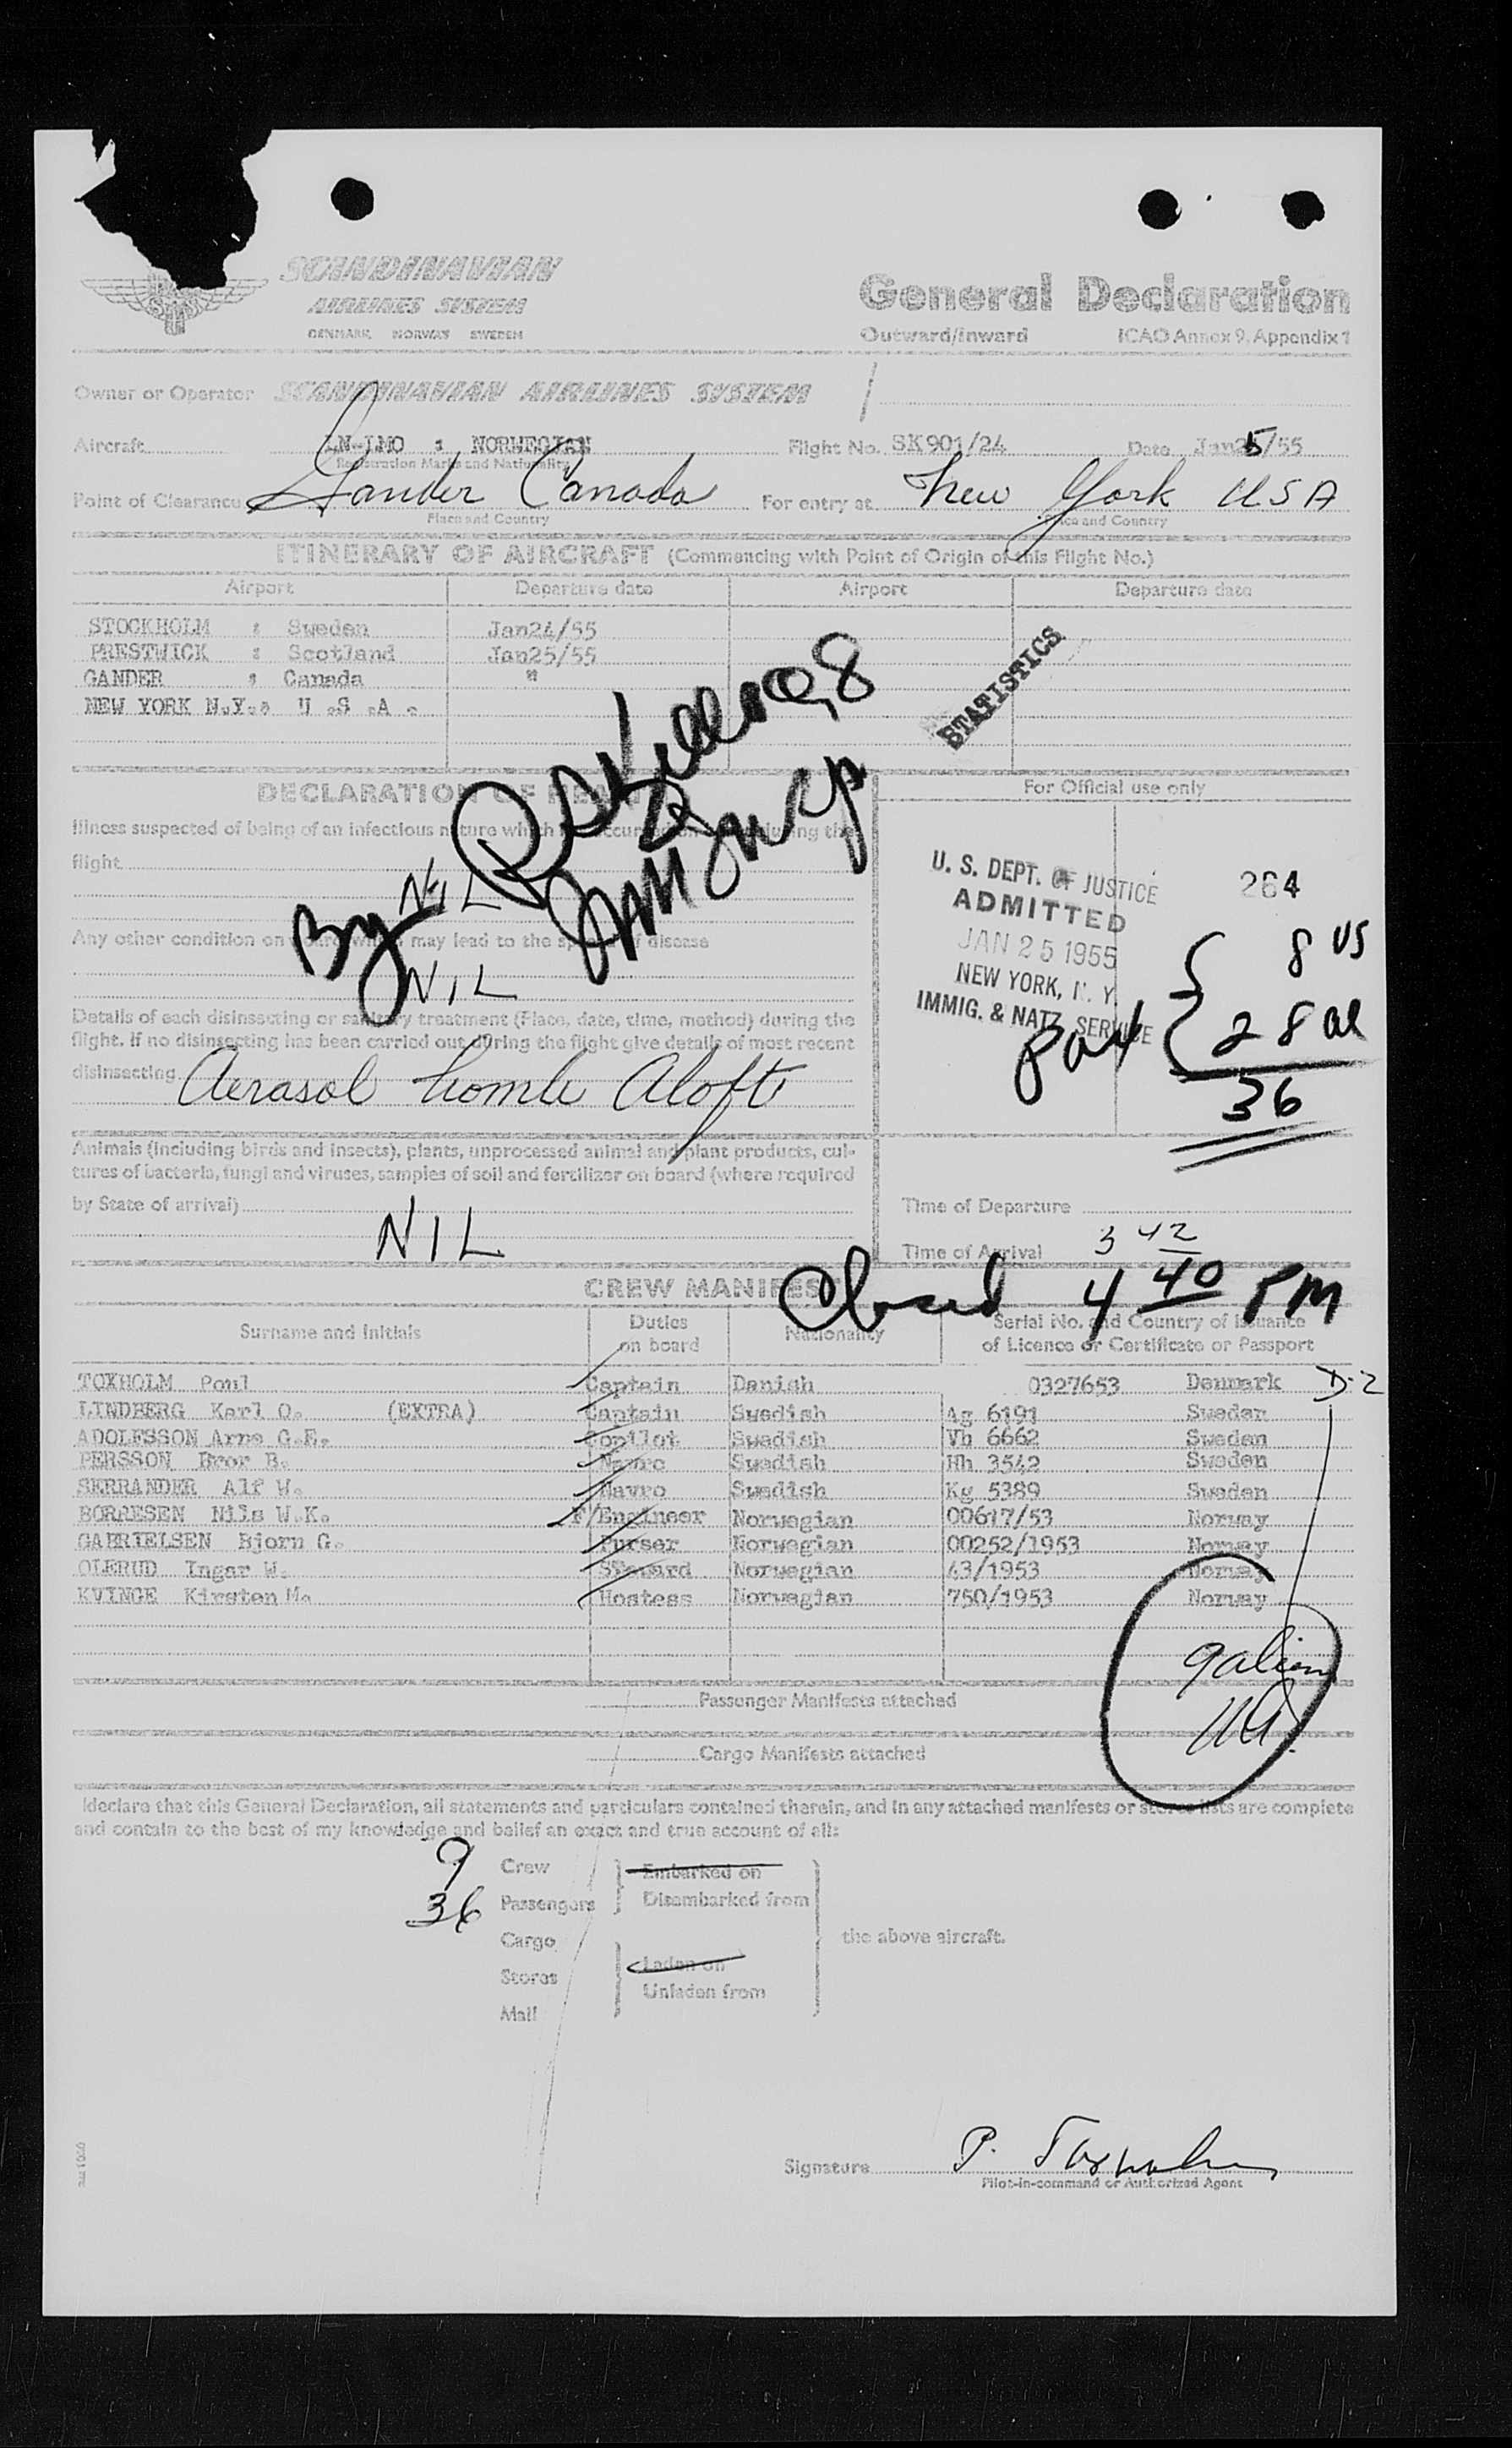 SCANDINAVIAN
AIRLINES SYSTEM
DENMARK NORWAY SWEDEN
General Declaration
Outward/Inward ICAO Annex 9, Appendix 1
Owner or Operator SCANDINAVIAN AIRLINES SYSTEM
Aircraft LN-LMO : NORWEGIAN Flight No. SK901/24 Date Jan25/55
Registration Marks and Nationality
Point of Clearance Gander Canada For entry at New York USA
Place and Country Place and Country
ITINERARY OF AIRCRAFT (Commencing with Point of Origin of this Flight No.)
Airport Departure date Airport Departure date
STOCKHOLM : Sweden Jan24/55
PRESTWICK : Scotland Jan25/55
GANDER : Canada "
NEW YORK N.Y. U.S.A.
STATISTICS
DECLARATION OF HEALTH
Illness suspected of being of an infectious nature which has occurred on board during the
flight
NIL
Any other condition on board which may lead to the spread of disease
NIL
By
Details of each disinsecting or sanitary treatment (Place, date, time, method) during the
flight. If no disinsecting has been carried out during the flight give details of most recent
disinsecting Aerasol bomb Aloft
Animals (including birds and insects), plants, unprocessed animal and plant products, cul-
tures of bacteria, fungi and viruses, samples of soil and fertilizer on board (where required
by State of arrival)
NIL
For Official use only
U. S. DEPT. OF JUSTICE
ADMITTED
JAN 25 1955
NEW YORK, N. Y.
IMMIG. & NATZ. SERVICE
264
8 US
Pax 28 al
36
Time of Departure
Time of Arrival 3 42
Closed 4 40 PM
CREW MANIFEST
Surname and Initials Duties on board Nationality Serial No. and Country of Issuance of Licence or Certificate or Passport
TOXHOLM Poul Captain Danish 0327653 Denmark D-2
LINDBERG Karl O. (EXTRA) Captain Swedish Ag 6191 Sweden
ADOLFSSON Arne G.E. Copilot Swedish Vh 6662 Sweden
PERSSON Bror B. Navro Swedish Hh 3542 Sweden
SERRANDER Alf W. Navro Swedish Kg 5389 Sweden
BORRESEN Nils W.K. F/Engineer Norwegian 00617/53 Norway
GABRIELSEN Bjorn G. Purser Norwegian 00252/1953 Norway
OLERUD Ingar W. Steward Norwegian 43/1953 Norway
KVINGE Kirsten M. Hostess Norwegian 750/1953 Norway
9 alien
Passenger Manifests attached
Cargo Manifests attached
I declare that this General Declaration, all statements and particulars contained therein, and in any attached manifests or stores lists are complete
and contain to the best of my knowledge and belief an exact and true account of all:
9 Crew Embarked on
36 Passengers Disembarked from
Cargo the above aircraft.
Stores Laden on
Mail Unladen from
Signature P. Toxholm
Pilot-in-command or Authorized Agent